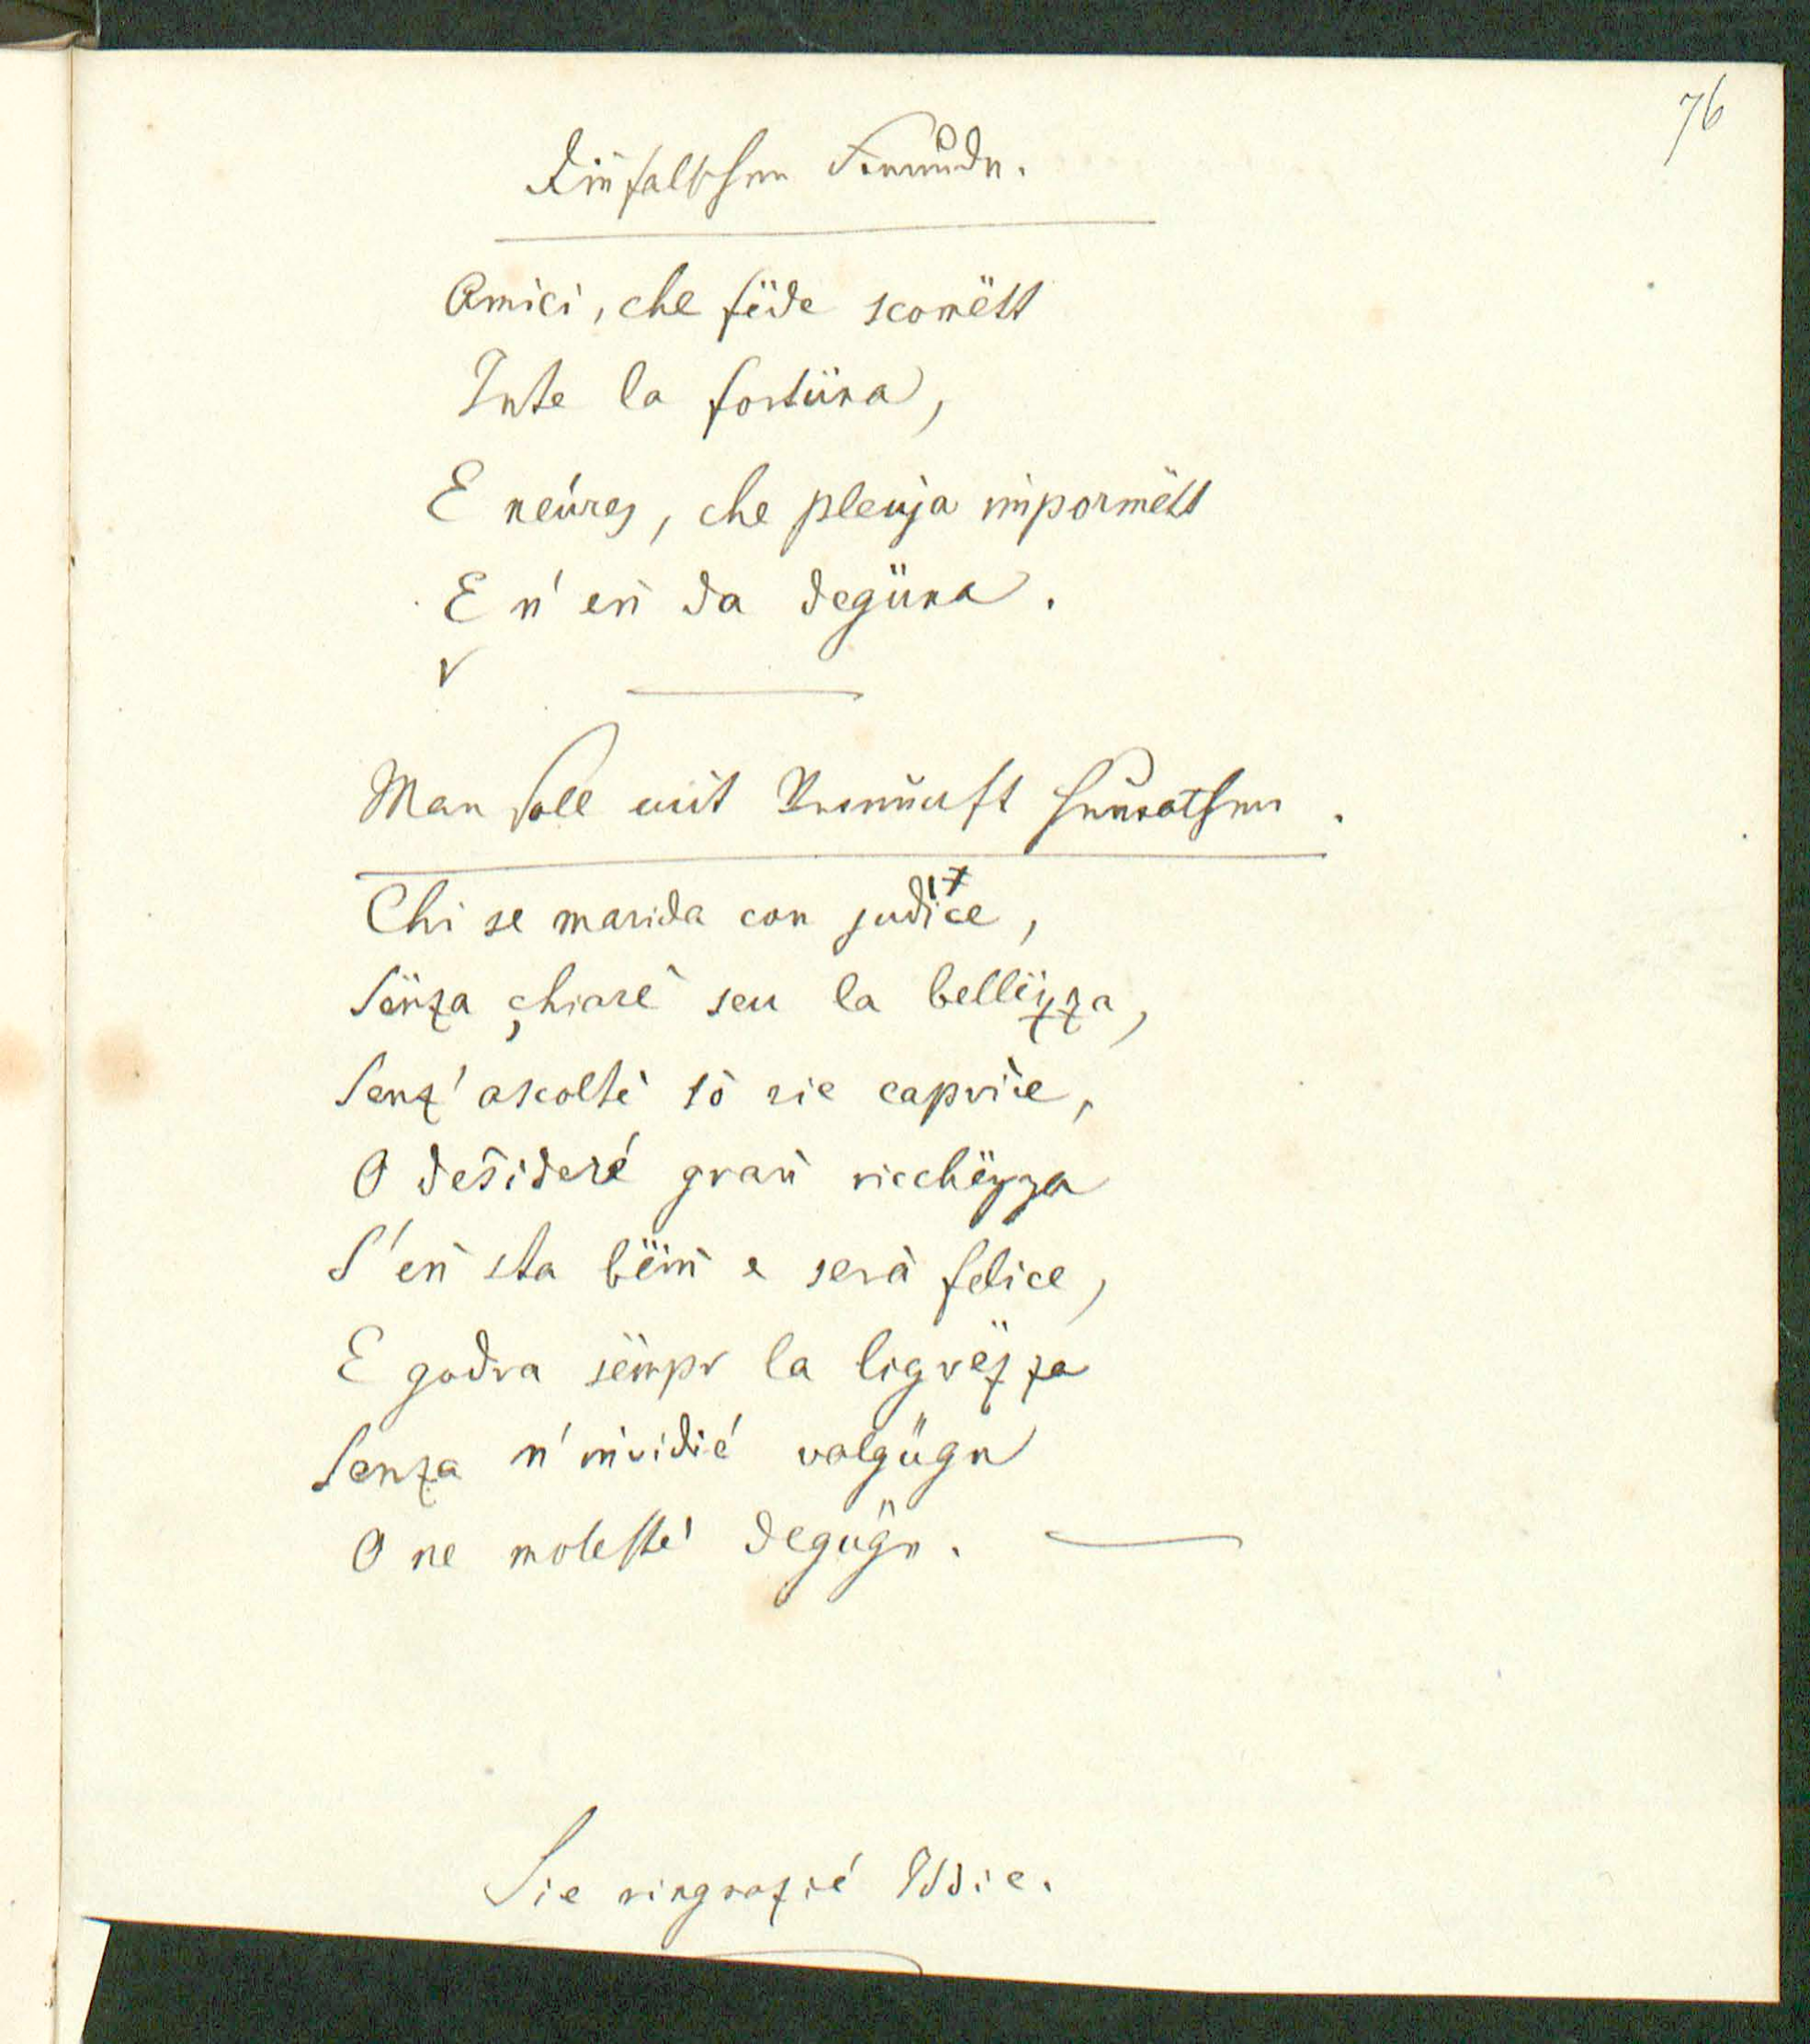 76
Die falschen Freunde.
Amici, che fëde scomëtt
Inte la fortüna,
E neúres, che pleuja impormëtt
E n' en̄ da degüna.
Man soll mit Vernunft heurathen.
Chi se marida con judice,
Sënza chiarè seu la bellëzza,
Senz' ascoltè sò rie caprice,
O desideré gran̄ ricchëzza
S' en̄ sta bëin̄ e serà felice,
E godra sëmpr la ligrëzza
Senza n' invidié valgügn
O ne molesté degügn.
Sie ringrazié Iddie.